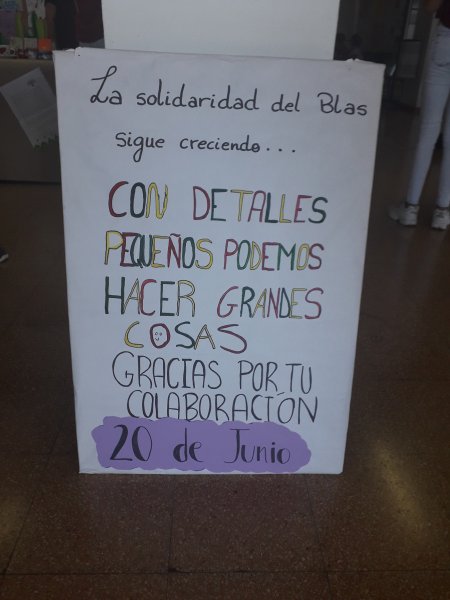 La solidaridad del Blas
sigue creciendo...
CON DETALLES
PEQUEÑOS PODEMOS
HACER GRANDES
COSAS
GRACIAS POR TU
COLABORACIÓN
20 de Junio